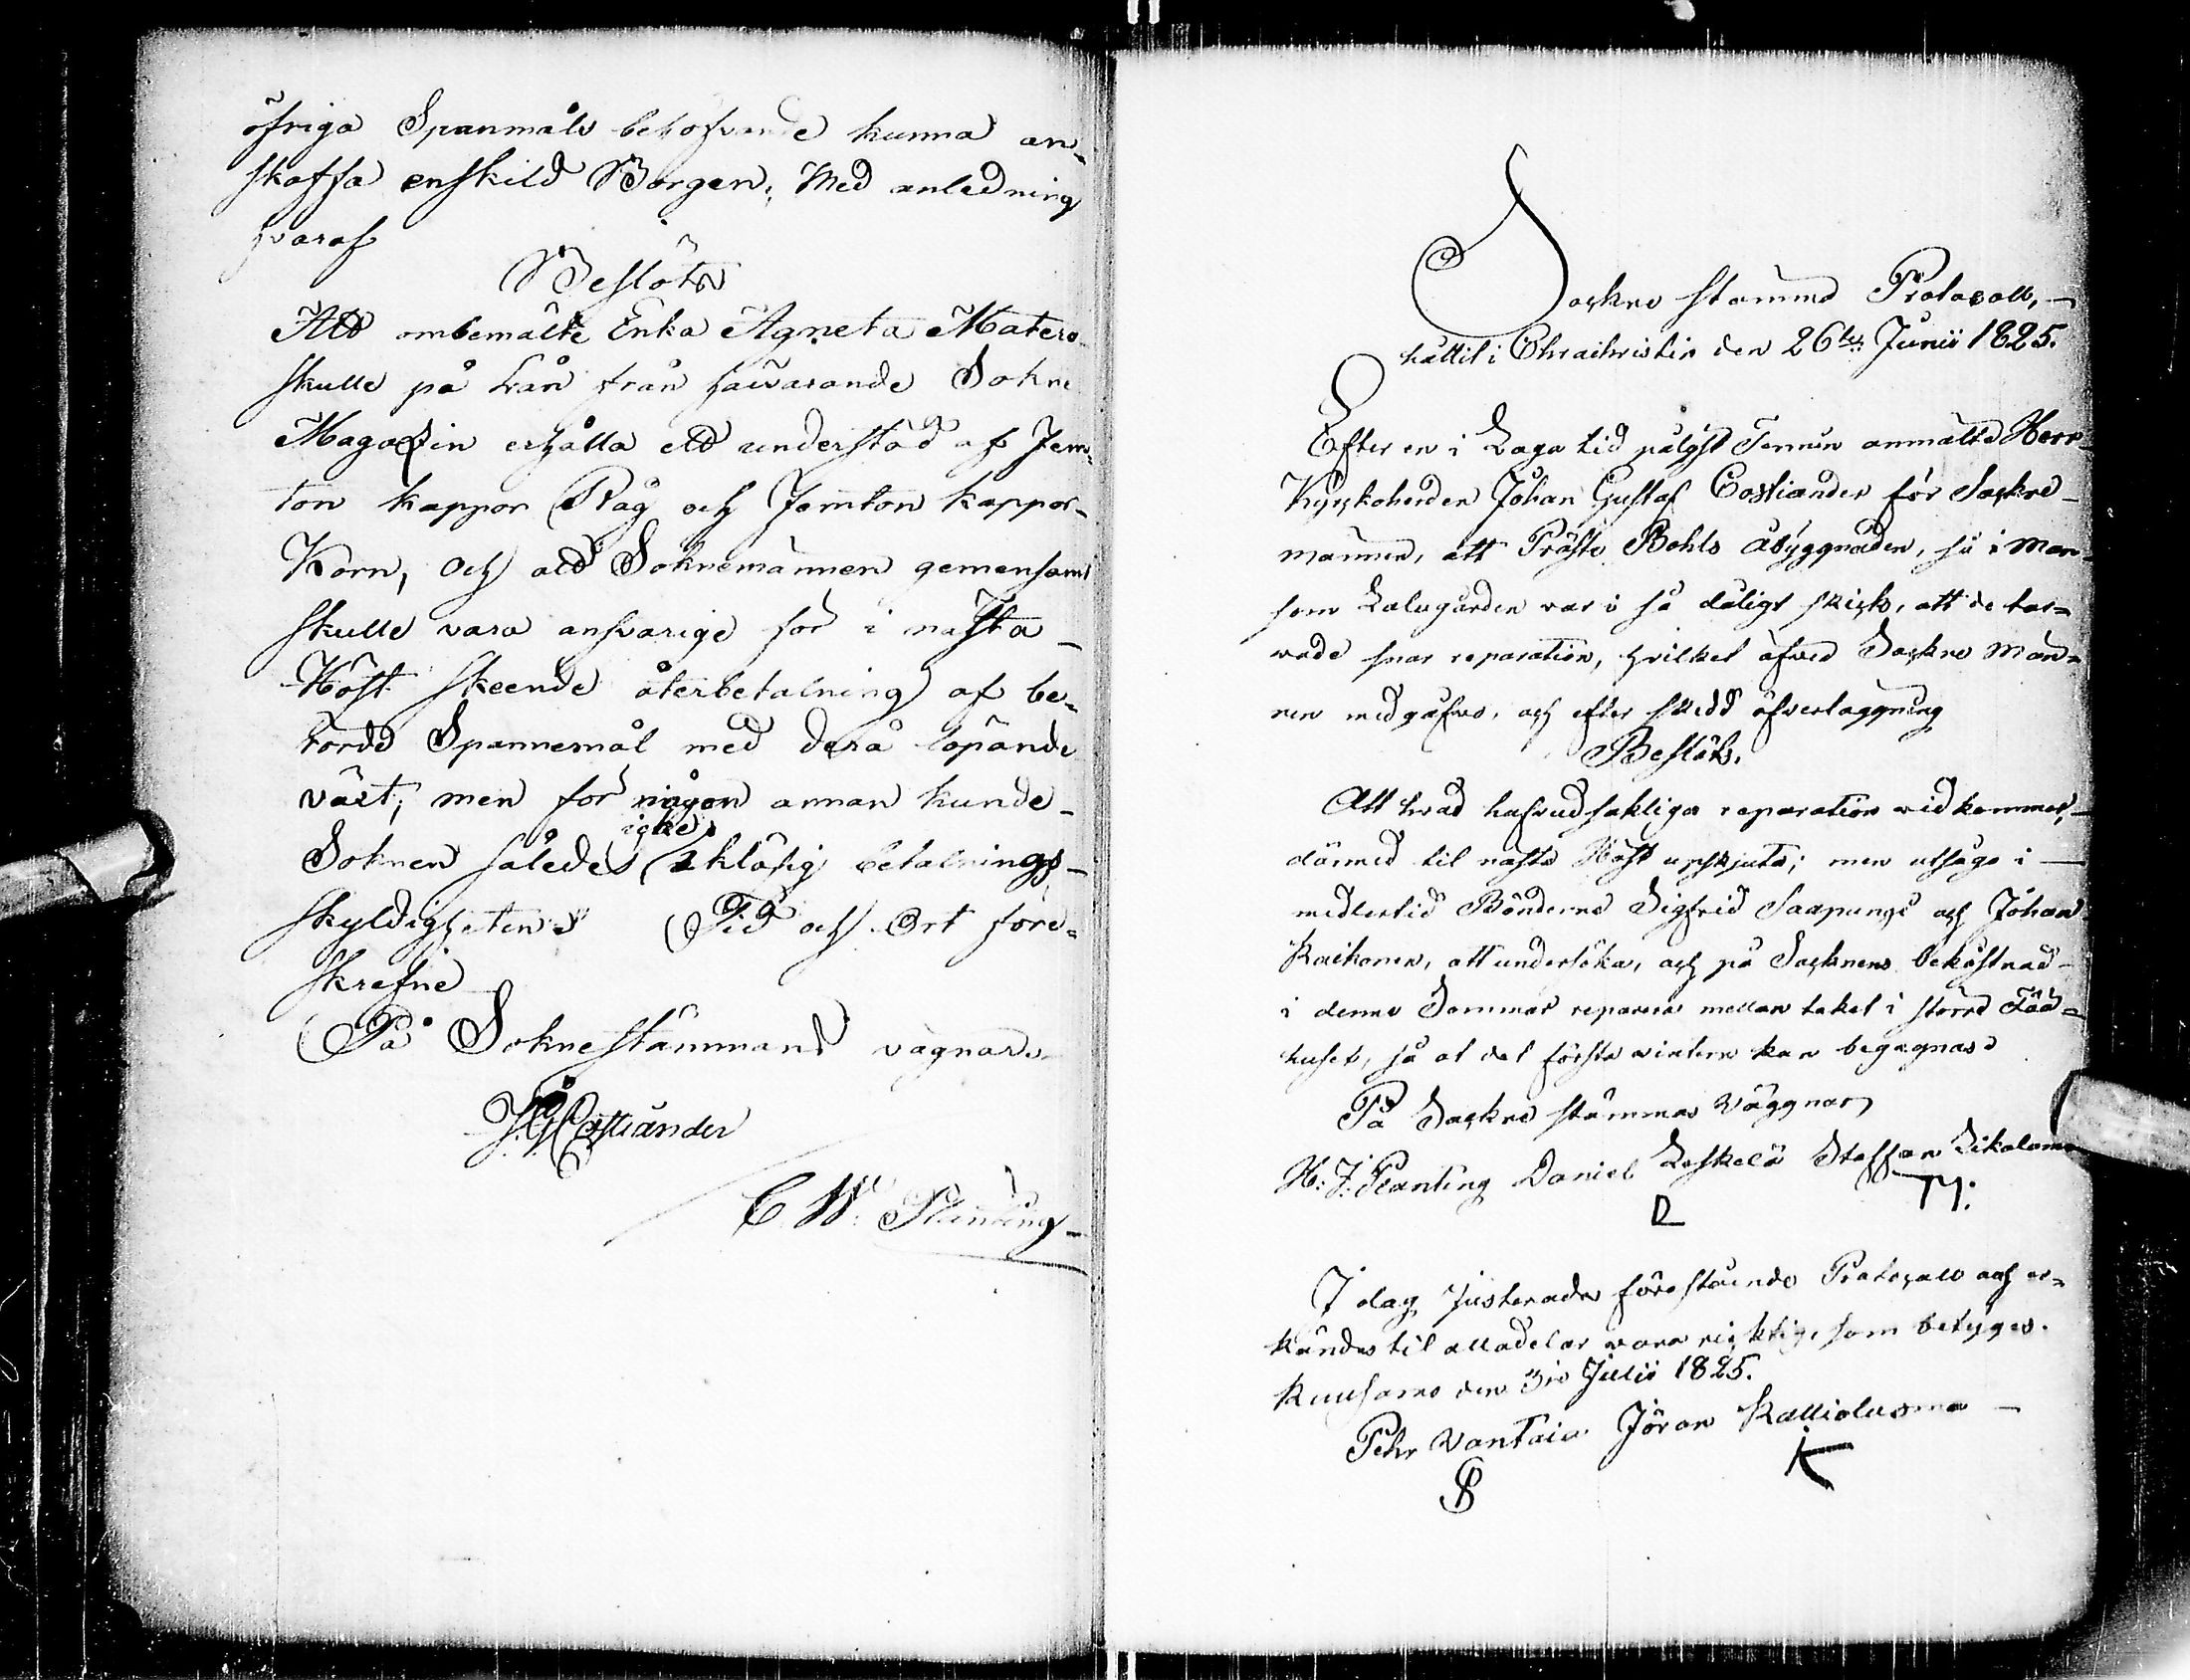 öfriga Spanmåls behofvande kunna an-
skaffa enskild Borgen; Med anledning
hvaraf
Beslöts
Att ombemälte Enka Agneta Matero
skulle på Lån från härvarande Sokne
Magazin erhålla ett understöd af Jem-
ton kappor Råg och Jemton kappor-
Korn, och att Soknemännen gemensamt
skulle vara ansvarige för i nästa-
Höst skeende återbetalning af be-
rörde Spannemål med derå löpande
växt; men för någon annan kunde-
icke
Soknen således ikläfig betalnings-
skyldigheten. Tid och Ort före-
skrefne
På Soknestämmans vägnar
J.G. Costiander
C. W. Planting-
Sockne stämmo Protocoll,-
hållit i Chraichristis den 26te Junii 1825.
Efter en i Laga tid pålyst Termin anmälte Herr
Kyrkoherden Johan Gustaf Costiander för Sockne-
männen, att Präste Bohls åbyggnaden, så i Man-
som Ladugården var i så dåligt skick, att de tar=
vade snar reparation, hvilket äfwen Sockne Män=
nen medgåfvo, och efter skedd öfverläggning
Beslöts.
Att hvad hufvudsakliga reparation vidkommer,-
därmed til nästa Höst upskjuta; men utsågo i-
medlertid Bönderne Sigfrid Saapunge och Johan
Raihonen, att undersöka, och på Socknens bekostnad-
i denne Sommar reparera mellan taket i större Fää=
huset, så at det första vintern kan begagnas
På Sockne stämmas Väggnar
H: J: Planting Daniel Leskelä Staffan Likalamo
I dag justerades föreståendes Protocoll och er=
kändes til alla delar vara ricktig, som betyges.
Kuusamo den 3io Julii 1825.
Pehr Vantaia Jöran Kallioluoma-
K